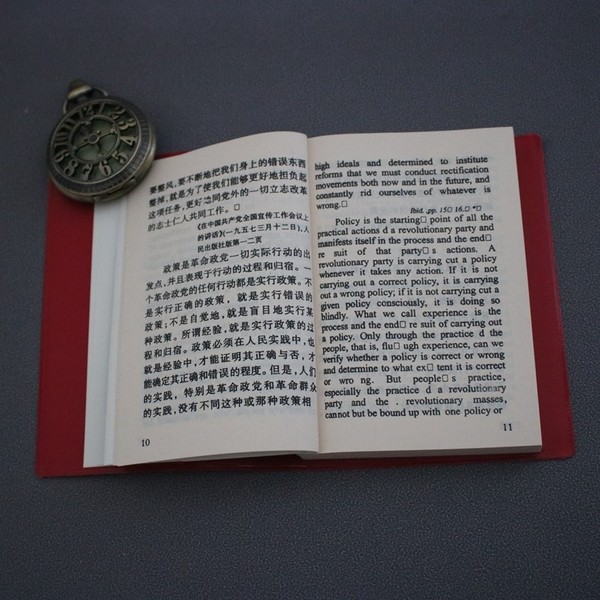 要整风,要不断地把我们身上的错误东西
整掉,就是为了使我们能够更好地担负起
这项任务,更好地同党外的一切立志改革
的志士仁人共同工作。□
《在中国共产党全国宣传工作会议上
的讲话》(一九五七三月十二日),人
民出版社版第一二页
政策是革命政党一切实际行动的出
发点,并且表现于行动的过程和归宿。一
个革命政党的任何行动都是实行政策。不
是实行正确的政策,就是实行错误的
政策;不是自觉地,就是盲目地实行某
种政策。所谓经验,就是实行政策的过
程和归宿。政策必须在人民实践中,也
就是经验中,才能证明其正确与否,才
能确定其正确和错误的程度。但是,人们
的实践,特别是革命政党和革命群众
的实践,没有不同这种或那种政策相
10
high ideals and determined to institute
reforms that we must conduct rectification
movements both now and in the future, and
constantly rid ourselves of whatever is
wrong.□
Ibid.,pp. 15□ 16.□ *□
Policy is the starting□ point of all the
practical actions d a revolutionary party and
manifests itself in the process and the end□
re suit of that party□ s actions. A
revolutionary party is carrying cut a policy
whenever it takes any action. If it is not
carrying out a correct policy, it is carrying
out a wrong policy; if it is not carrying cut a
given policy consciously, it is doing so
blindly. What we call experience is the
process and the end□ re suit of carrying out
a policy. Only through the practice d the
people, that is, flu□ ugh experience, can we
verify whether a policy is correct or wrong
and determine to what ex□ tent it is correct
or wro ng. But people□ s practice,
especially the practice d a revolutionary
party and the . revolutionary masses,
cannot but be bound up with one policy or
11
12
1
2
3
4
5
6
7
8
9
10
11